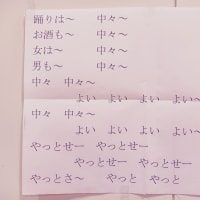 踊りは～　　中々～
お酒も～　　中々～
女は～　　中々～
男も～　　中々～
中々　中々～
よい　よい　よい　よい～
中々　中々～
よい　よい　よい　よい～
やっとせー　やっとせー
やっとせー　やっとせー
やっとさ～　やっと　やっと